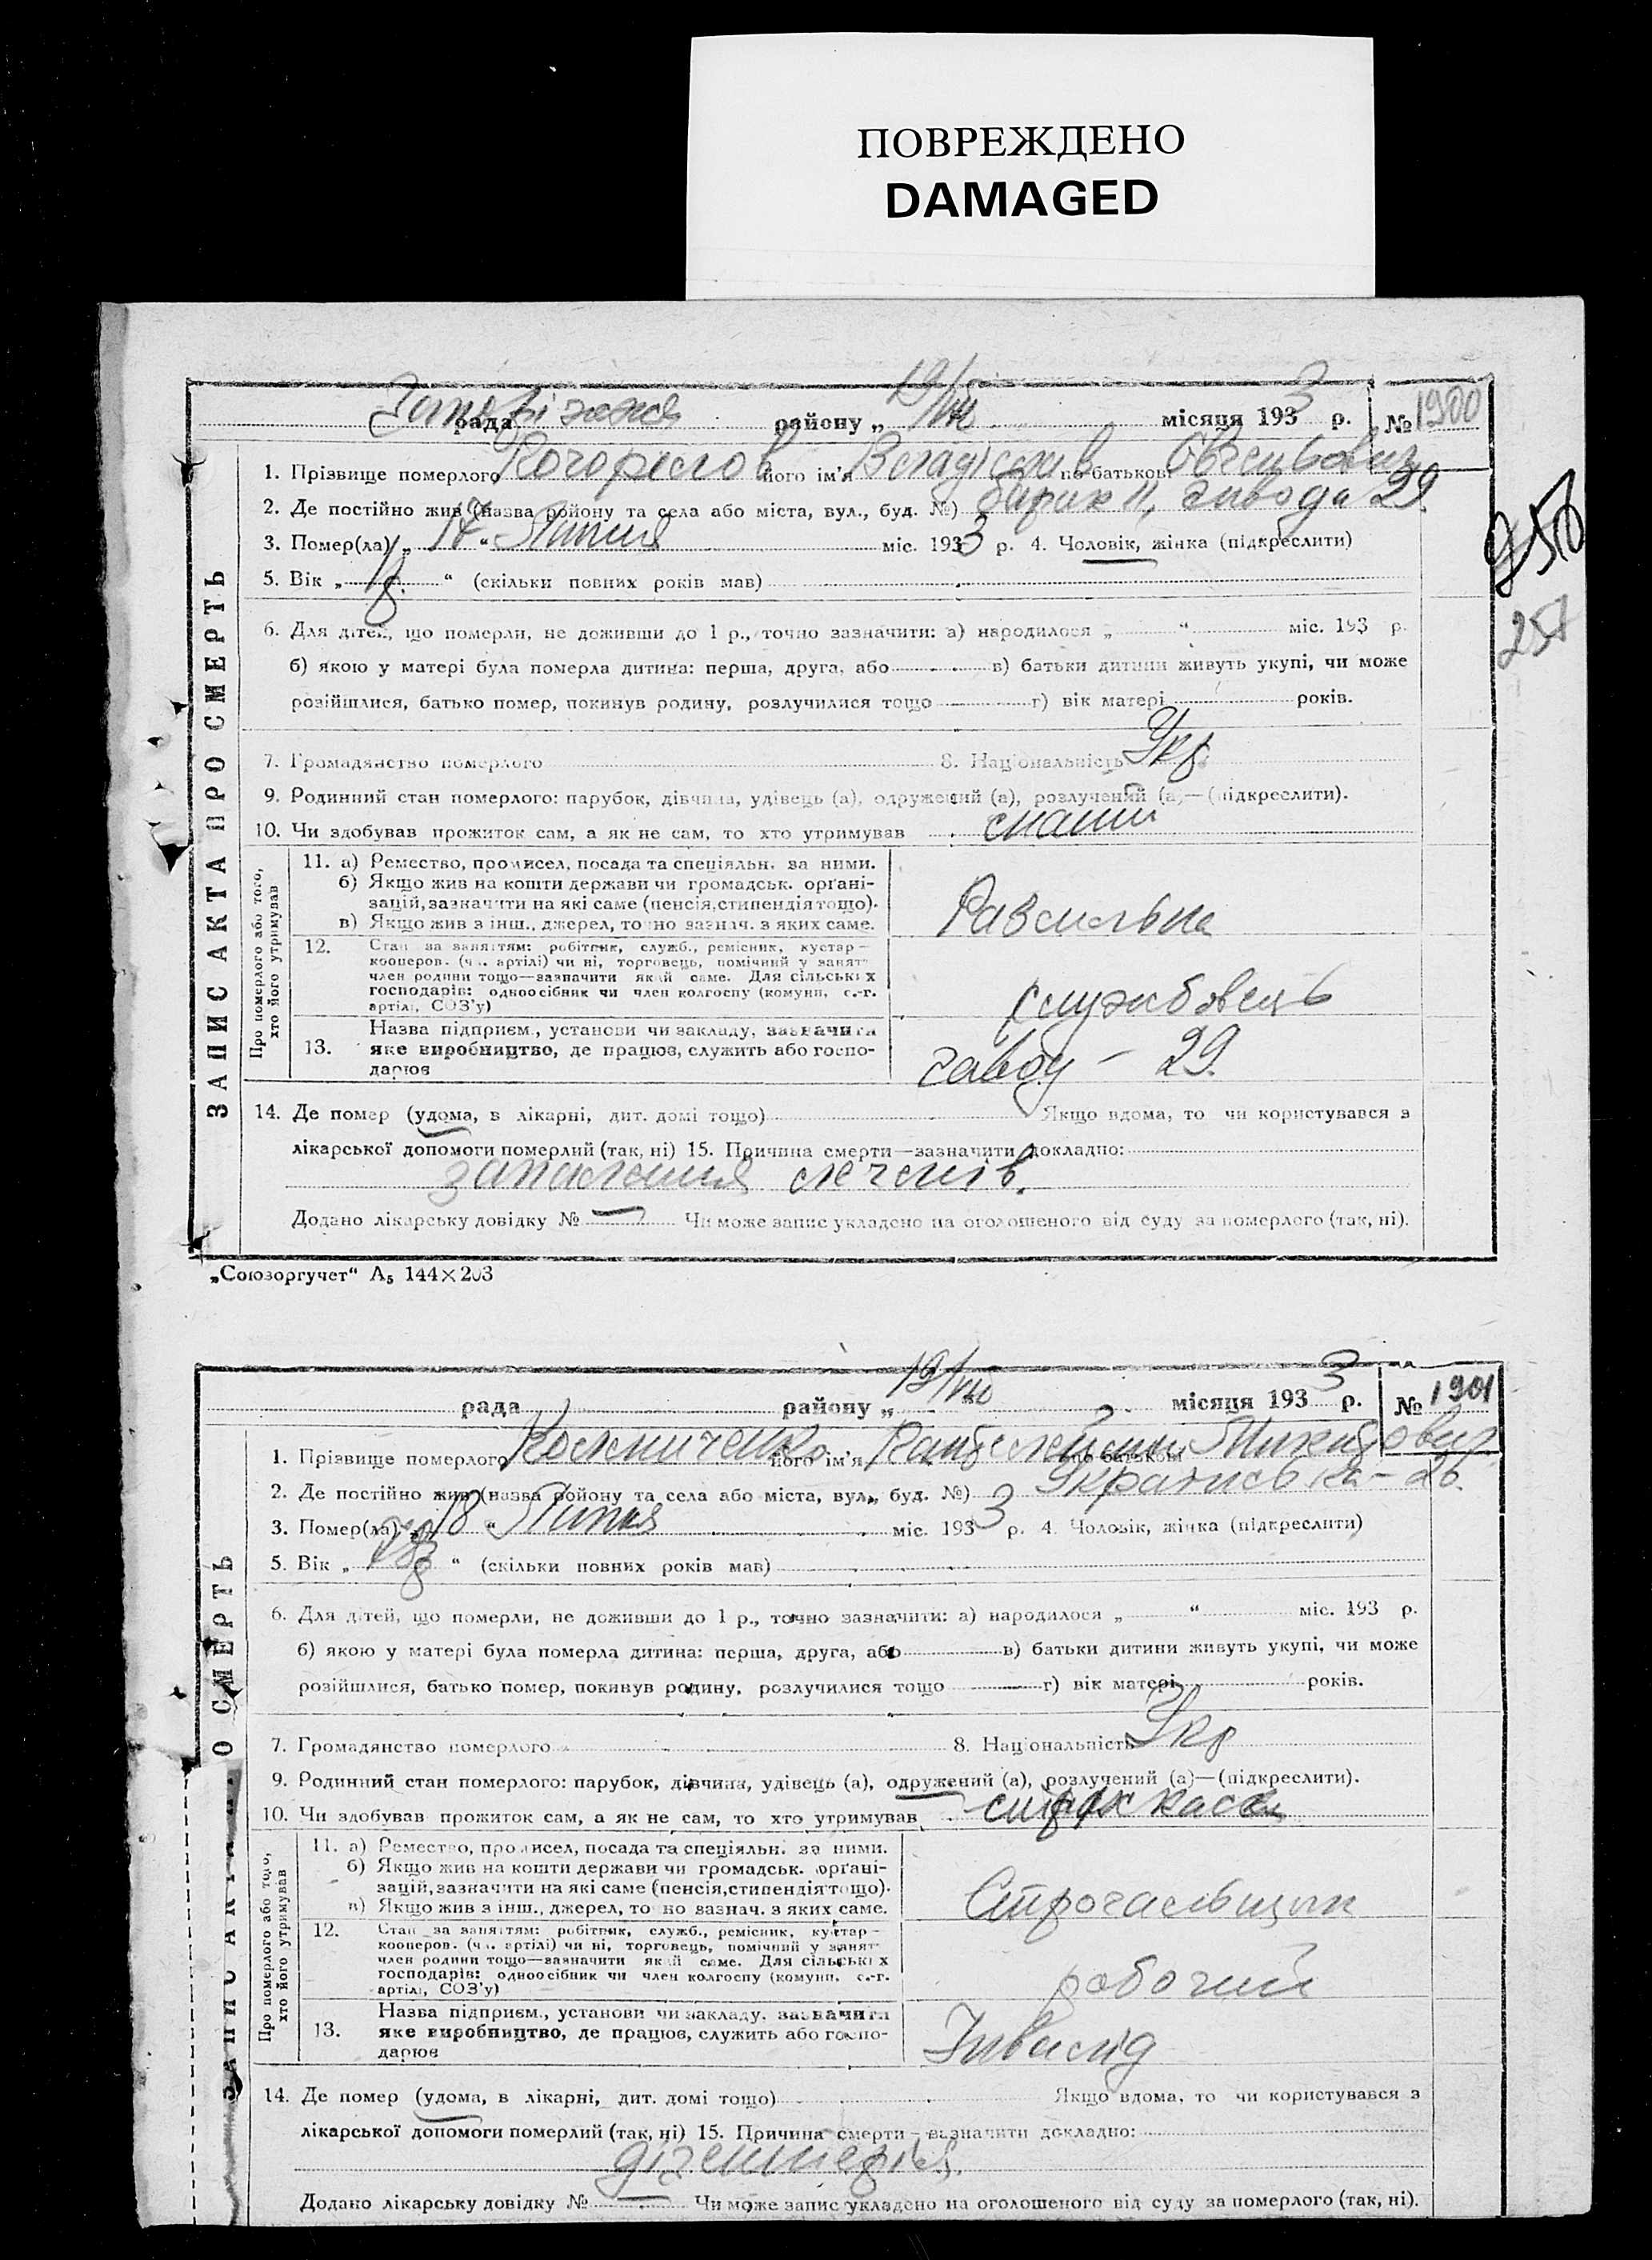 ПОВРЕЖДЕНО
DAMAGED
рада району „ 19/VII місяця 1933 р. № 1900
1. Прізвище померлого його ім'я Владіслав по батькові
2. Де постійно жив (назва району та села або міста, вул., буд. №) барак 11, завода 29.
3. Помер(ла) „ 17 “ Липня міс. 1933 р. 4. Чоловік, жінка (підкреслити)
5. Вік „ “ (скільки повних років мав)
6. Для дітей, що померли, не доживши до 1 р., точно зазначити: а) народилося „ “ міс. 193 р.
б) якою у матері була померла дитина: перша, друга, або в) батьки дитини живуть укупі, чи може
розійшлися, батько помер, покинув родину, розлучилися тощо г) вік матері років.
7. Громадянство померлого 8. Національність Укр
9. Родинний стан померлого: парубок, дівчина, удівець (а), одружений (а), розлучений (а)—(підкреслити).
10. Чи здобував прожиток сам, а як не сам, то хто утримував
ЗАПИС АКТА ПРО СМЕРТЬ
Про померлого або того,
хто його утримував
11. а) Ремество, промисел, посада та спеціяльн. за ними.
б) Якщо жив на кошти держави чи громадськ. органі-
зацій, зазначити на які саме (пенсія, стипендія тощо).
в) Якщо жив з інш., джерел, точно зазнач. з яких саме.
12. Стан за заняттям: робітник, служб., ремісник, кустар—
кооперов. (чл. артілі) чи ні, торговець, помічний у занят-
член родини тощо—зазначити який саме. Для сільських
господарів: одноосібник чи член колгоспу (комуни, с.-г.
артілі, СОЗ'у)
службовець
Назва підприєм., установи чи закладу, зазначити
13. яке виробництво, де працює, служить або госпо-
дарює
заводу – 29.
14. Де помер (удома, в лікарні, дит. домі тощо) Якщо вдома, то чи користувався з
лікарської допомоги померлий (так, ні) 15. Причина смерти—зазначити докладно:
запалення легенів.
Додано лікарську довідку № Чи може запис укладено на оголошеного від суду за померлого (так, ні).
„Союзоргучет“ А₅ 144×203
257
рада району „ 19/VII місяця 1933 р. № 1901
1. Прізвище померлого його ім'я по батькові
2. Де постійно жив (назва району та села або міста, вул., буд. №) – 26.
3. Помер(ла) „ 18 “ Липня міс. 1933 р. 4. Чоловік, жінка (підкреслити)
5. Вік „ “ (скільки повних років мав)
6. Для дітей, що померли, не доживши до 1 р., точно зазначити: а) народилося „ “ міс. 193 р.
б) якою у матері була померла дитина: перша, друга, або в) батьки дитини живуть укупі, чи може
розійшлися, батько помер, покинув родину, розлучилися тощо г) вік матері років.
7. Громадянство померлого 8. Національність Укр
9. Родинний стан померлого: парубок, дівчина, удівець (а), одружений (а), розлучений (а)—(підкреслити).
10. Чи здобував прожиток сам, а як не сам, то хто утримував страх каса
Про померлого або того,
хто його утримував
11. а) Ремество, промисел, посада та спеціяльн. за ними.
б) Якщо жив на кошти держави чи громадськ. органі-
зацій, зазначити на які саме (пенсія, стипендія тощо).
в) Якщо жив з інш., джерел, точно зазнач. з яких саме.
Строгальщик
12. Стан за заняттям: робітник, служб., ремісник, кустар—
кооперов. (чл. артілі) чи ні, торговець, помічний у занят-
член родини тощо—зазначити який саме. Для сільських
господарів: одноосібник чи член колгоспу (комуни, с.-г.
артілі, СОЗ'у)
робочий
Назва підприєм., установи чи закладу, зазначити
13. яке виробництво, де працює, служить або госпо-
дарює
Інвалід
14. Де помер (удома, в лікарні, дит. домі тощо) Якщо вдома, то чи користувався з
лікарської допомоги померлий (так, ні) 15. Причина смерти—зазначити докладно:
Додано лікарську довідку № Чи може запис укладено на оголошеного від суду за померлого (так, ні).